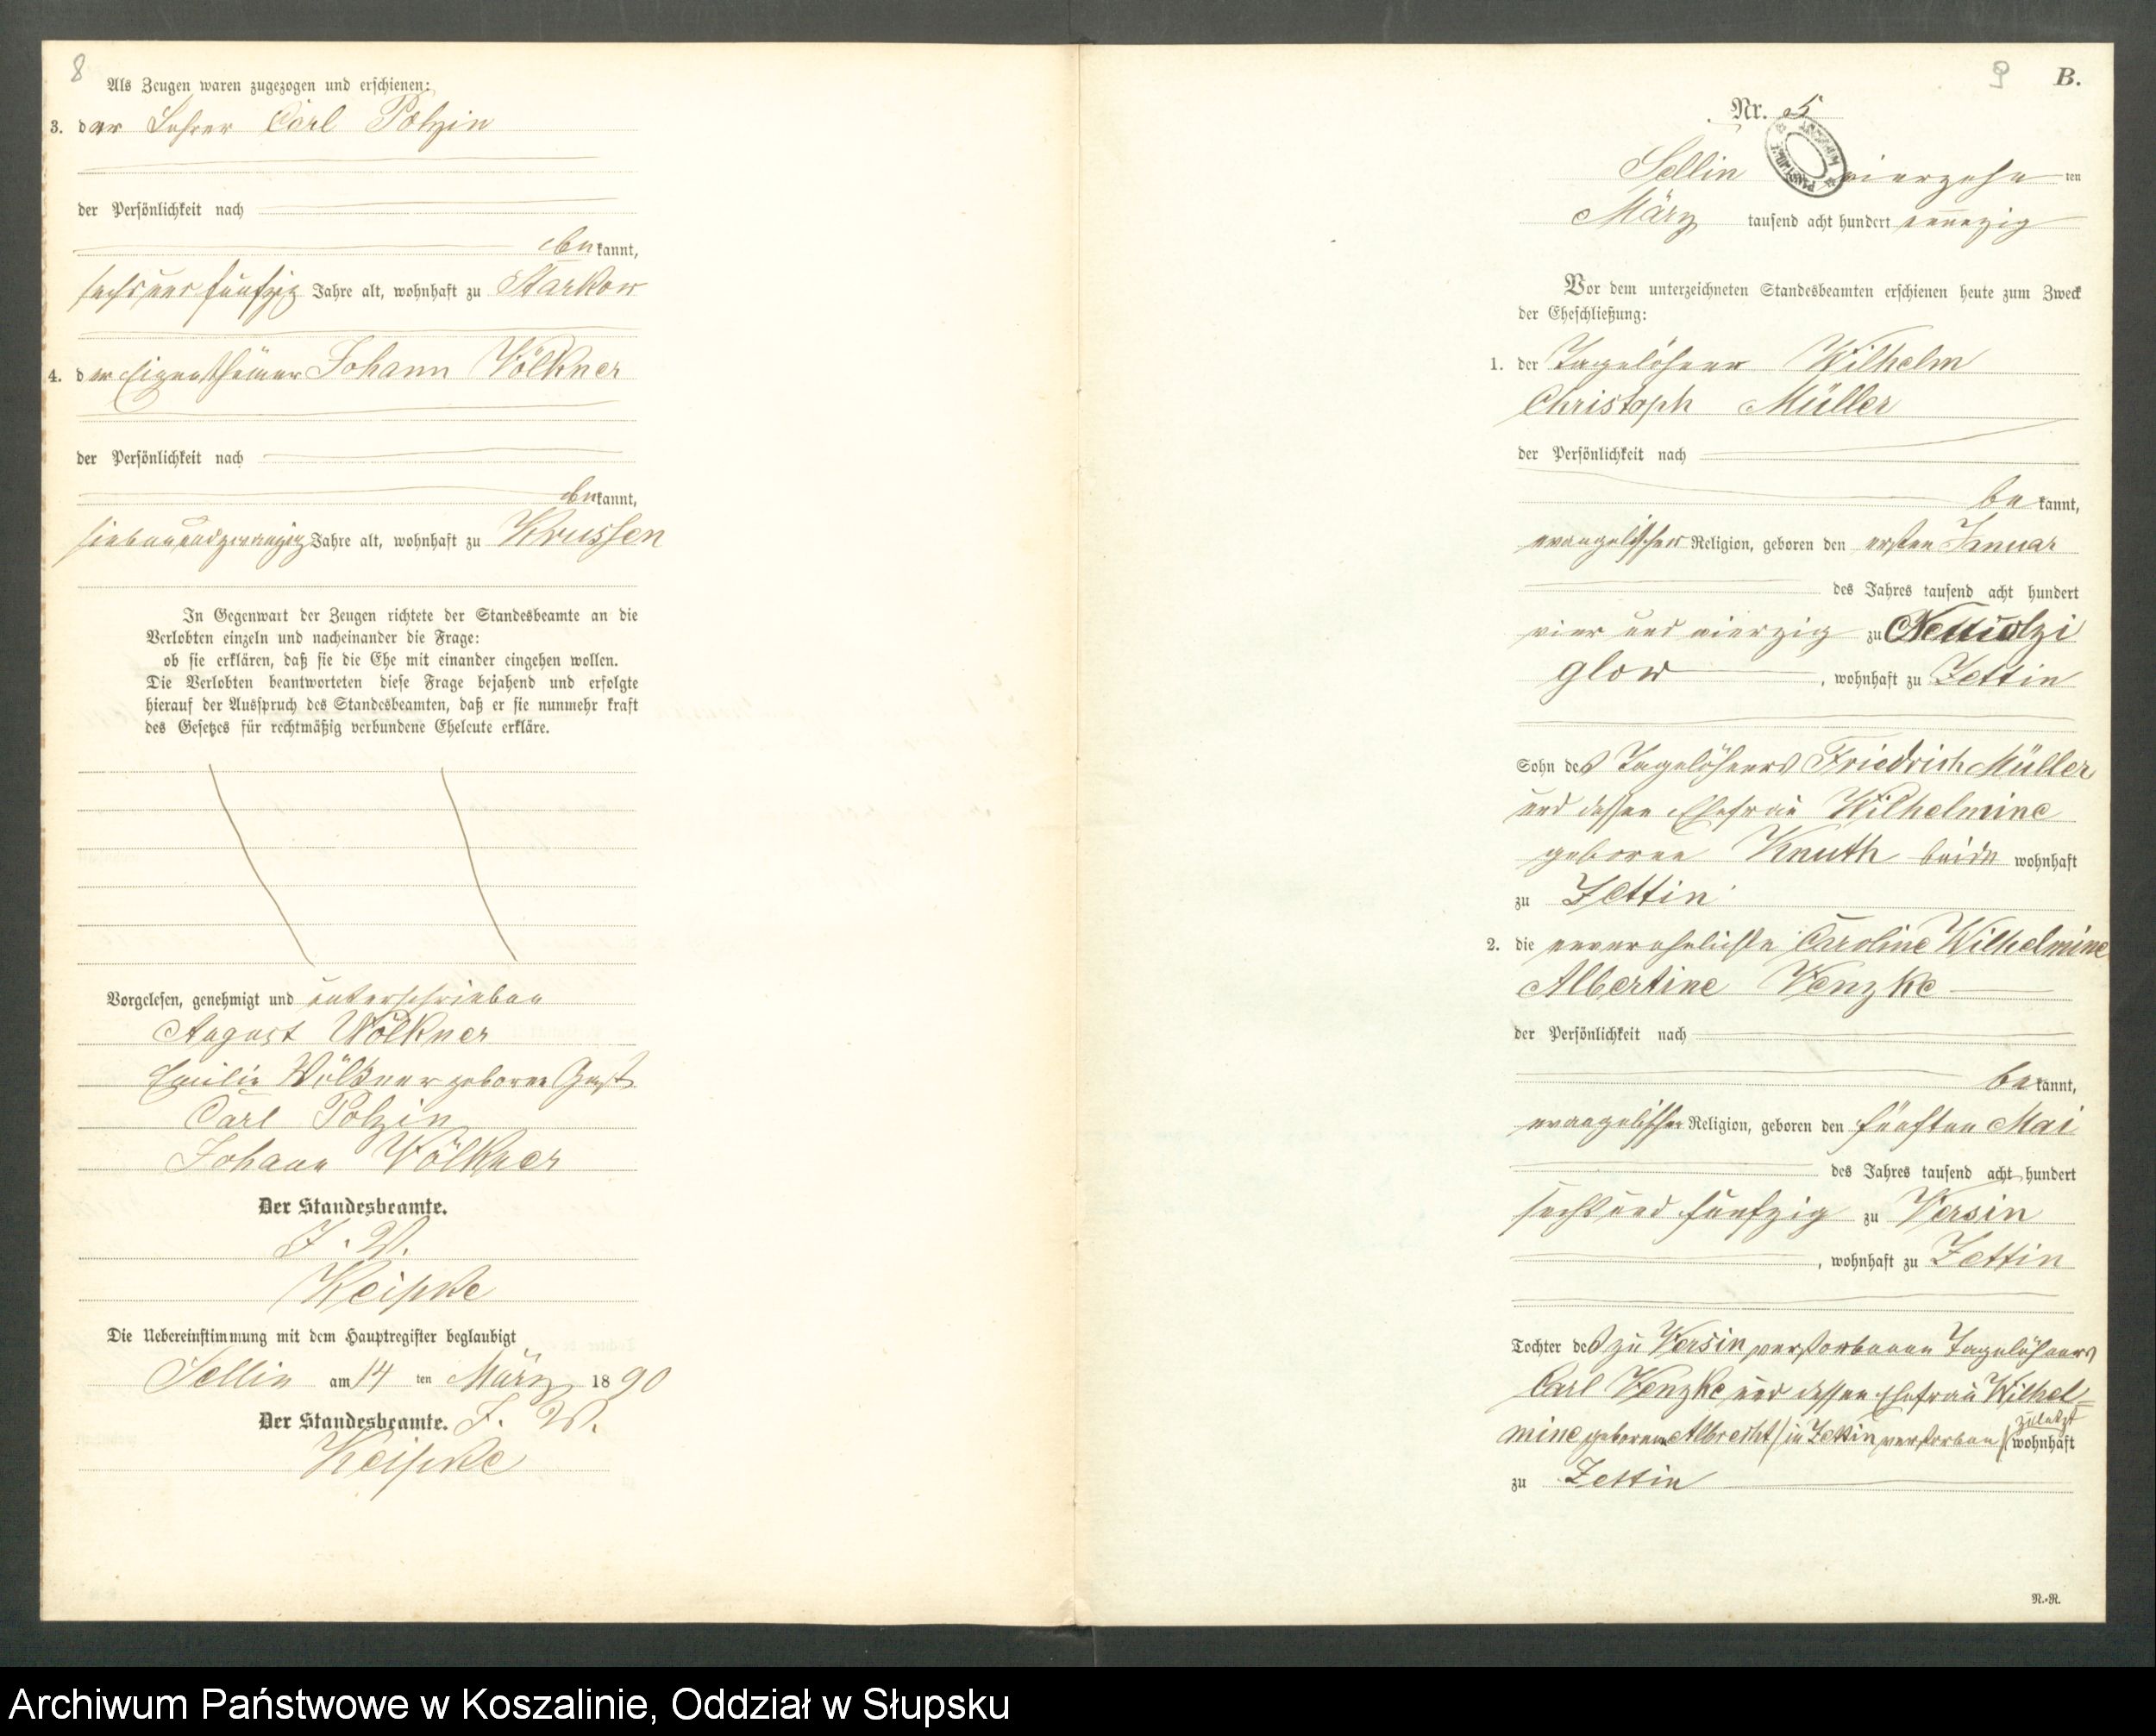 8
Als Zeugen waren zugezogen und erschienen:
3. der Lehrer Carl Polzin
der Persönlichkeit nach
bekannt,
sechs und fünfzig Jahre alt, wohnhaft zu Starkow
4. der Eigenthümer Johann Völkner
der Persönlichkeit nach
bekannt,
siebenundzwanzig Jahre alt, wohnhaft zu Krussen
In Gegenwart der Zeugen richtete der Standesbeamte an die
Verlobten einzeln und nacheinander die Frage:
ob sie erklären, daß sie die Ehe mit einander eingehen wollen.
Die Verlobten beantworteten diese Frage bejahend und erfolgte
hierauf der Ausspruch des Standesbeamten, daß er sie nunmehr kraft
des Gesetzes für rechtmäßig verbundene Eheleute erkläre.
Vorgelesen, genehmigt und unterschrieben
August Völkner
Emilie Völkner geborene
Carl Polzin
Johann Völkner
Der Standesbeamte.
J. V.
Keipke
Die Uebereinstimmung mit dem Hauptregister beglaubigt
Sellin am 14 ten März 1890
Der Standesbeamte. J. V.
Keipke
9
B.
Nr. 5
Sellin vierzehn ten
März tausend acht hundert neunzig
Vor dem unterzeichneten Standesbeamten erschienen heute zum Zweck
der Eheschließung:
1. der Tagelöhner Wilhelm
Christoph Müller
der Persönlichkeit nach
bekannt,
evangelischer Religion, geboren den ersten Januar
des Jahres tausend acht hundert
vier und vierzig zu
glow, wohnhaft zu Zettin
Sohn des Tagelöhners Friedrich Müller
und dessen Ehefrau Wilhelmine
geborene Knuth beide wohnhaft
zu Zettin
2. die unverehelichte Caroline Wilhelmine
Albertine Venzke
der Persönlichkeit nach
bekannt,
evangelischer Religion, geboren den fünften Mai
des Jahres tausend acht hundert
sechs und fünfzig zu Versin
, wohnhaft zu Zettin
Tochter des zu Versin verstorbenen Tagelöhners
Carl Venzke und dessen Ehefrau Wilhel=
mine geborene Albrecht (in Zettin verstorben) zuletzt wohnhaft
zu Zettin
R.-R.
Archiwum Państwowe w Koszalinie, Oddział w Słupsku